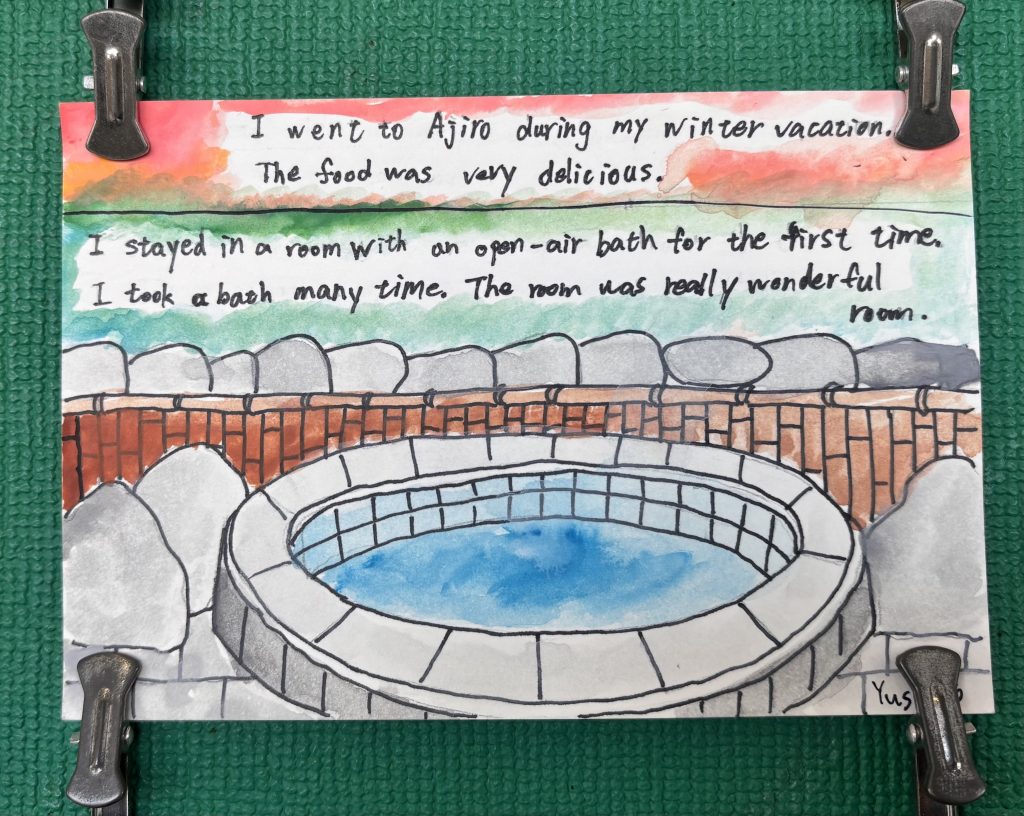 I went to Ajiro during my winter vacation.
The food was very delicious.
I stayed in a room with an open-air bath for the first time.
I took a bath many time. The room was really wonderful
room.